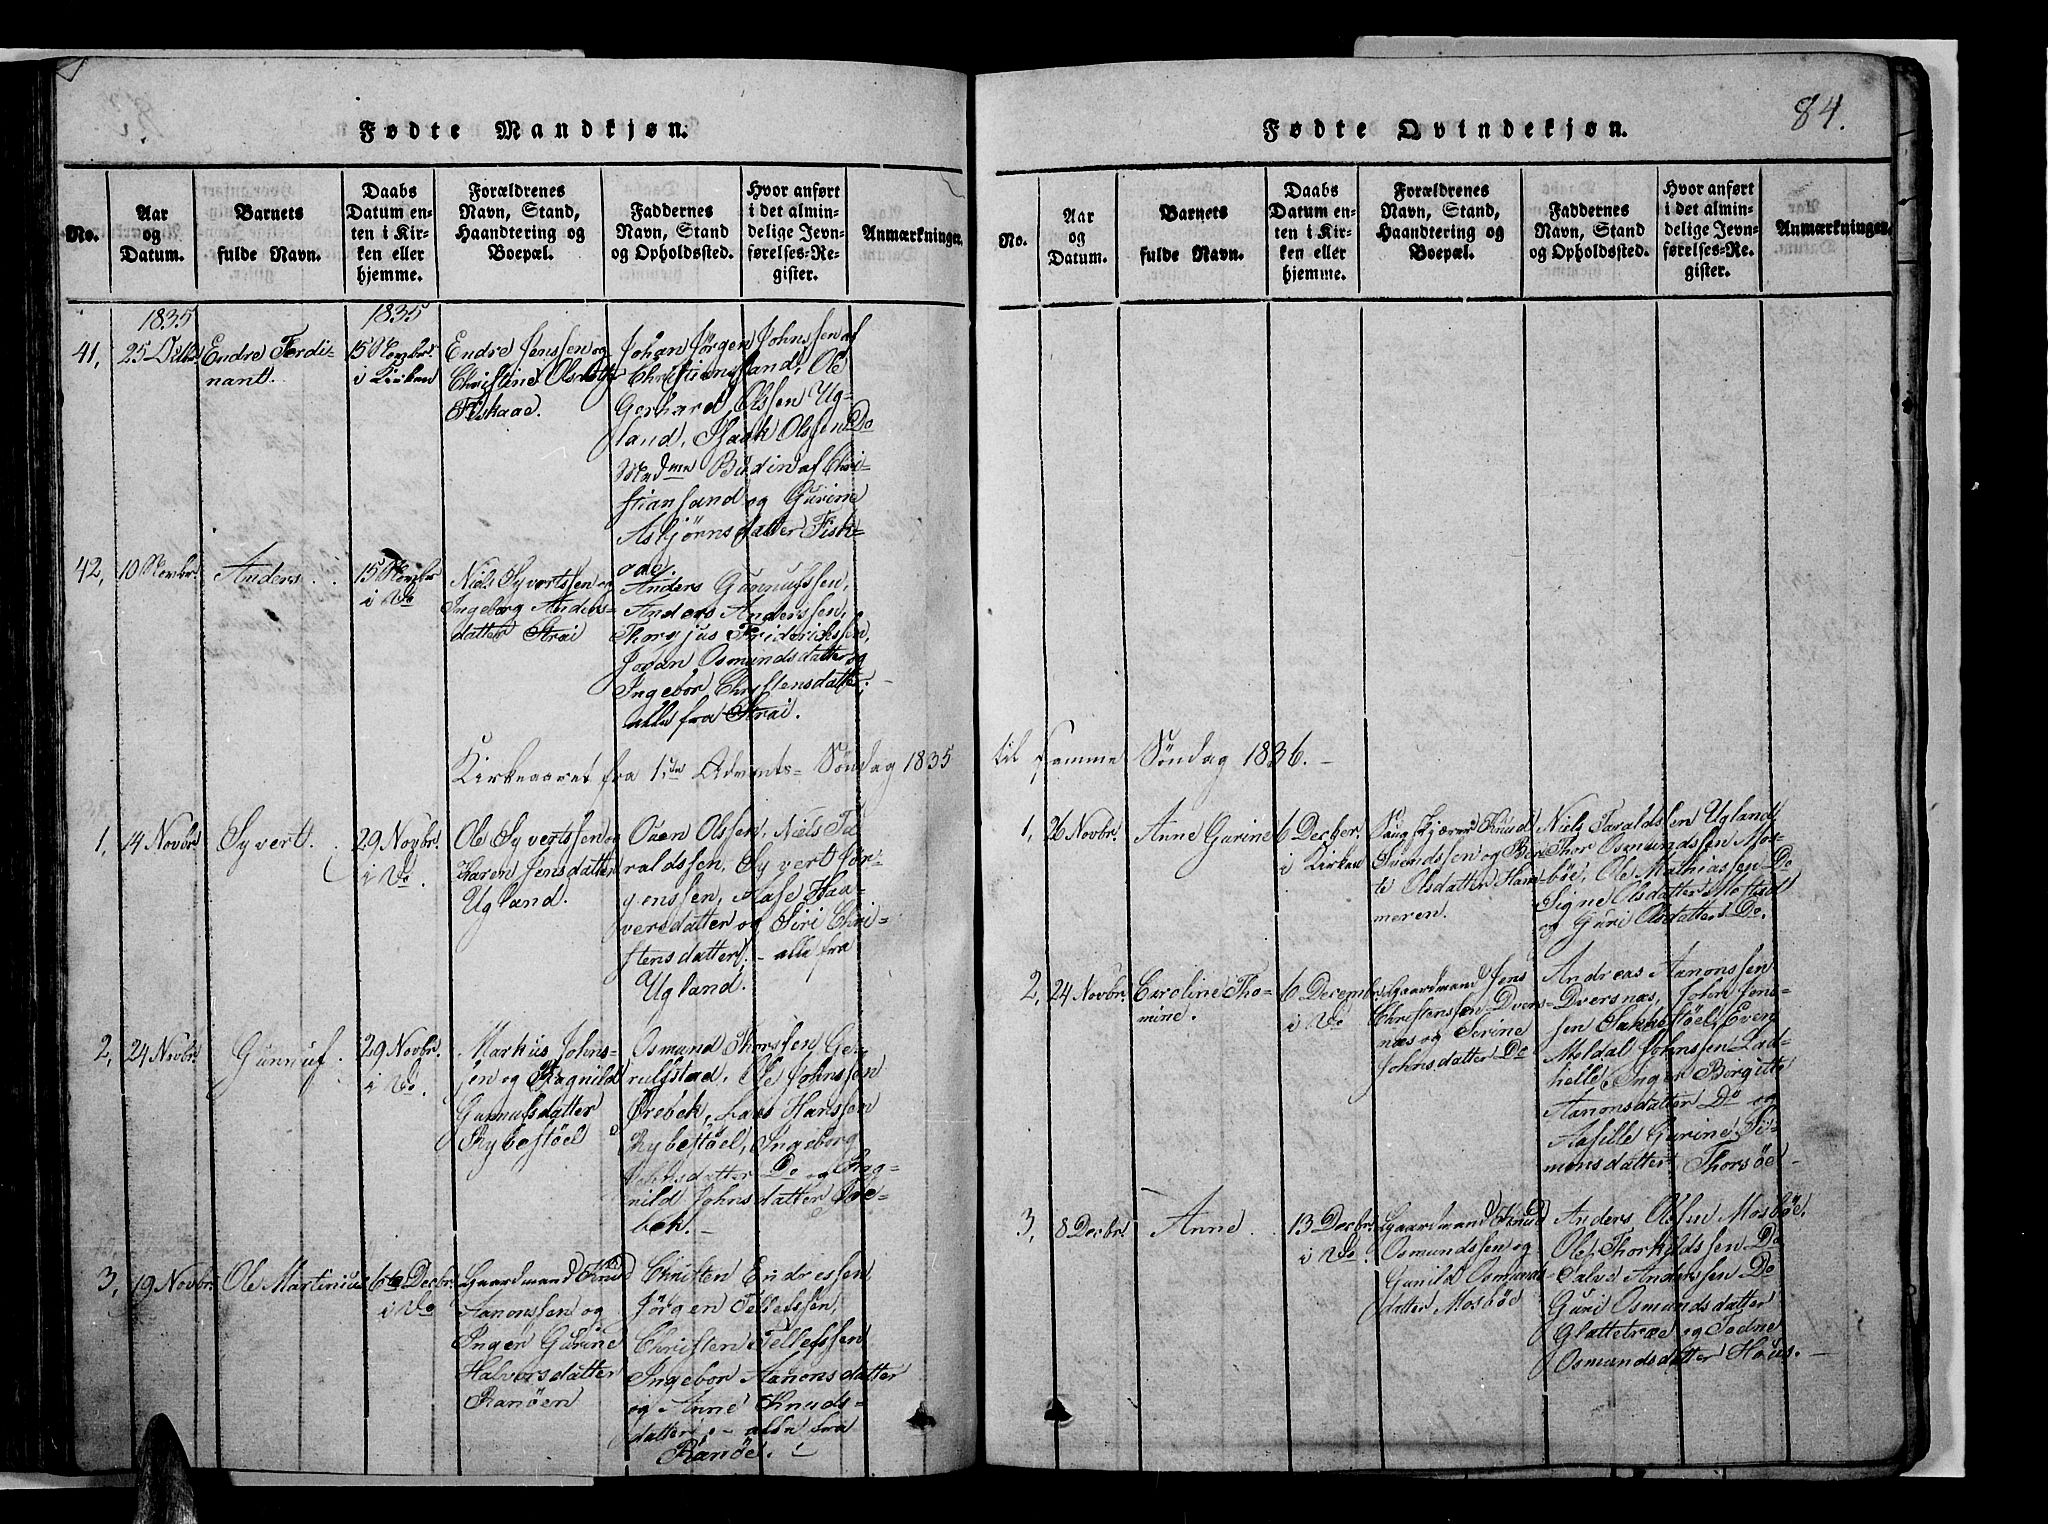 Fødte Mandkjøn.
No.
Aar og Datum.
Barnets fulde Navn.
Daabs Datum enten i Kirken eller hjemme.
Forældrenes Navn, Stand, Haandtering og Boepæl.
Faddernes Navn, Stand og Opholdssted.
Hvor anført i det almindelige Jevnførelses-Register.
Anmærkninger.
1835
1835
41,
25 Octbr
Endre Ferdi-
nant.
15 Novbr.
i Kirken
Endre Jenssen og
Christine Olsdatter
Fiskaae.
Johan Jörgen Johnssen af
Christiansand, Ole
Gerhard Olssen Ug-
land, Isaak Olssen Do
Madme Bodin af Chri-
stiansand og Gurine
Asbjörnsdatter Fisk-
aae.
42,
10 Novbr.
Anders.
15 Novbr
i Do
Niels Syvertssen og
Ingeborg Anders-
datter Strai
Anders Gunnufssen,
Anders Anderssen,
Thorgjus Friderichssen,
Joran Osmundsdatter og
Ingebor Christensdatter;
alle fra Strai.
Kirkeaaret fra 1ste Advents-Söndag 1835
1,
14 Novbr.
Syvert.
29 Novbr.
i Do.
Ole Syvertssen og
Karen Jensdatter
Ugland.
Oven Olssen, Niels Ta-
raldssen, Syvert Jör-
genssen, Aase Haa-
versdatter og Siri Chri-
stensdatter; - alle fra
Ugland.
2,
24 Novbr.
Gunnuf.
29 Novbr.
i Do.
Markus Johns-
sen og Ragnild
Gunnufsdatter
Rybestöel
Osmund Thorssen Ge-
rulfstad, Ole Johnssen
Ørebek, Lars Hanssen
Rybestöel, Ingeborg
datter Do og Rag-
nild Johnsdatter Øre-
bek.-
3,
19 Novbr.
Ole Martinius
6te Decbr.
i Do
Gaardmand Knud
Aanonssen og
Inger Gurine
Halvorsdatter
Ranöen
Christen Endressen,
Jörgen Tellefssen,
Christen Tellefssen
Ingebor Aanonsdatter
og Anne Knuds-
datter; - alle fra
Ranöe.
84.
Fødte Qvindekjøn.
No.
Aar og Datum.
Barnets fulde Navn.
Daabs Datum enten i Kirken eller hjemme.
Forældrenes Navn, Stand, Haandtering og Boepæl.
Faddernes Navn, Stand og Opholdssted.
Hvor anført i det almindelige Jevnførelses-Register.
Anmærkninger.
til samme Söndag 1836. -
1,
26 Novbr.
Anne Gurine
6 Decber.
i Kirken
Knud
Svendssen og Ben-
te Olsdatter Ham-
meren.
Niels Taraldssen Ugland,
Thor Osmundssen Mos-
böe, Ole Mathiassen Do
Signe Olsdatter Moftad
og Guri Olsdatter Do.
2,
24 Novbr.
Caroline Tho-
mine.
6 Decembr.
i Do
Gaardmand Jens
Christenssen Dvers-
næs og Serine
Johnsdatter Do
Andreas Aanonssen
Dversnæs, John Jens-
sen Sakkestöel, Even
Moldal Johnssen Lad-
helle, Inger Bergitte
Aanonsdatter Do og
Aasille Gurine Si-
monsdatter Thorsöe -
3,
8 Decbr.
Anne.
13 Decbr.
i Do.
Gaardmand Knud
Osmundssen og
Gunild Osmunds-
datter Mosböe
Anders Olssen Mosböe,
Ole Thorkildssen Do
Salve Anderssen Do
Guri Osmundsdatter
Glattetræ og Todne
Osmundsdatter Haus. -